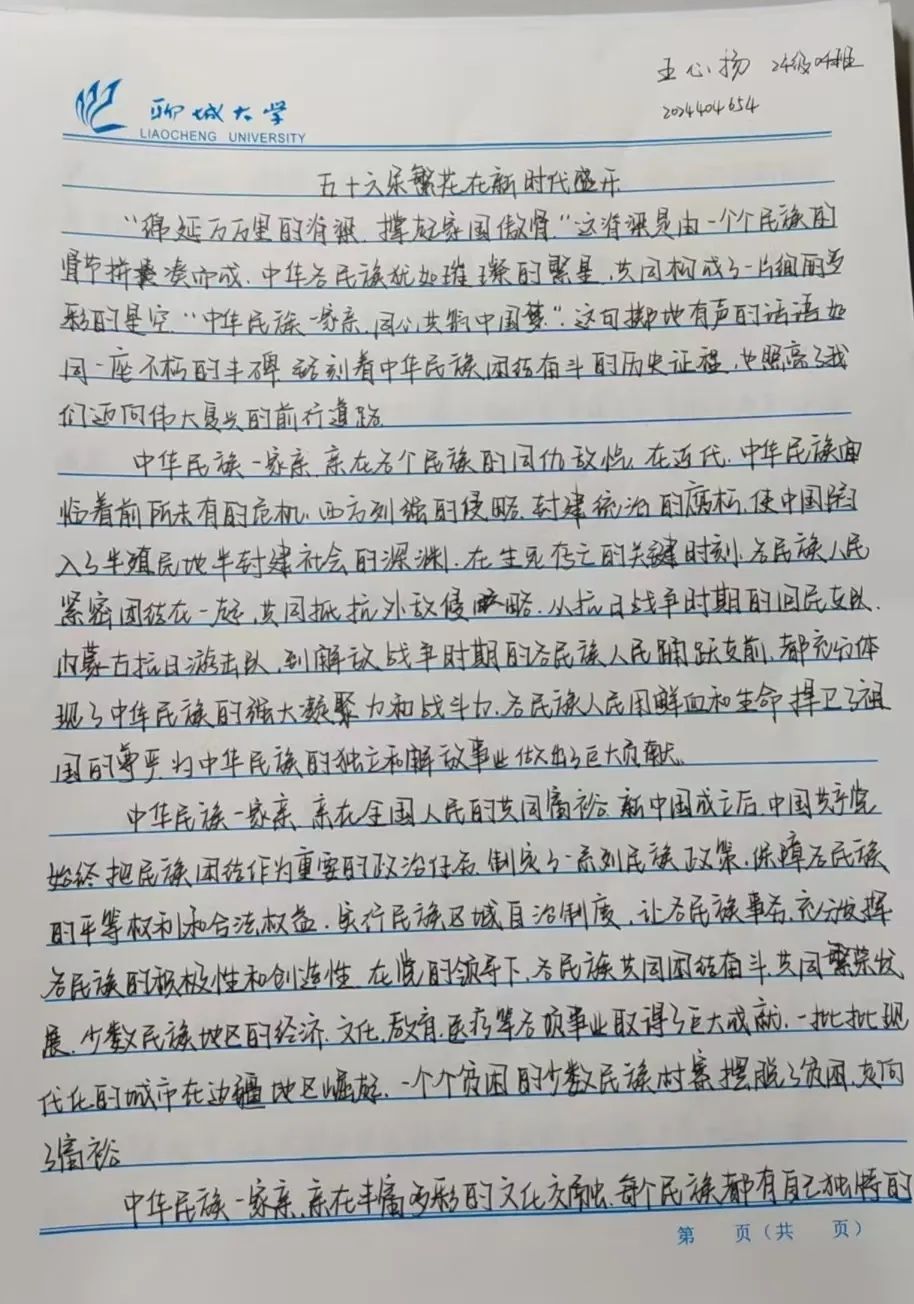 王心扬 24级04班
2024404654
聊城大学
LIAOCHENG UNIVERSITY
五十六朵繁花在新时代盛开
“绵延万万里的脊梁,撑起家国傲骨”这脊梁是由一个个民族的
骨节拼凑而成,中华各民族犹如璀璨的繁星,共同构成了一片绚丽多
彩的星空“中华民族一家亲,同心共筑中国梦”,这句掷地有声的话语如
同一座不朽的丰碑,铭刻着中华民族团结奋斗的历史征程,也照亮了我
们迈向伟大复兴的前行道路
中华民族一家亲,亲在各个民族的同仇敌忾,在近代,中华民族面
临着前所未有的危机,西方列强的侵略,封建统治的腐朽,使中国陷
入了半殖民地半封建社会的深渊,在生死存亡的关键时刻,各民族人民
紧密团结在一起,共同抵抗外敌侵略.从抗日战争时期的回民支队、
内蒙古抗日游击队,到解放战争时期的各民族人民踊跃支前,都充分体
现了中华民族的强大凝聚力和战斗力,各民族人民用鲜血和生命捍卫了祖
国的尊严,为中华民族的独立和解放事业做出了巨大贡献。
中华民族一家亲,亲在全国人民的共同富裕.新中国成立后,中国共产党
始终把民族团结作为重要的政治任务,制定了一系列民族政策,保障各民族
的平等权利和合法权益.实行民族区域自治制度,让各民族事务,充分发挥
各民族的积极性和创造性.在党的领导下,各民族共同团结奋斗,共同繁荣发
展,少数民族地区的经济、文化、教育、医疗等各项事业取得了巨大成就,一批批现
代化的城市在边疆地区崛起,一个个贫困的少数民族村寨摆脱了贫困,走向
了富裕
中华民族一家亲,亲在丰富多彩的文化交融,每个民族都有自己独特的
第 页(共 页)